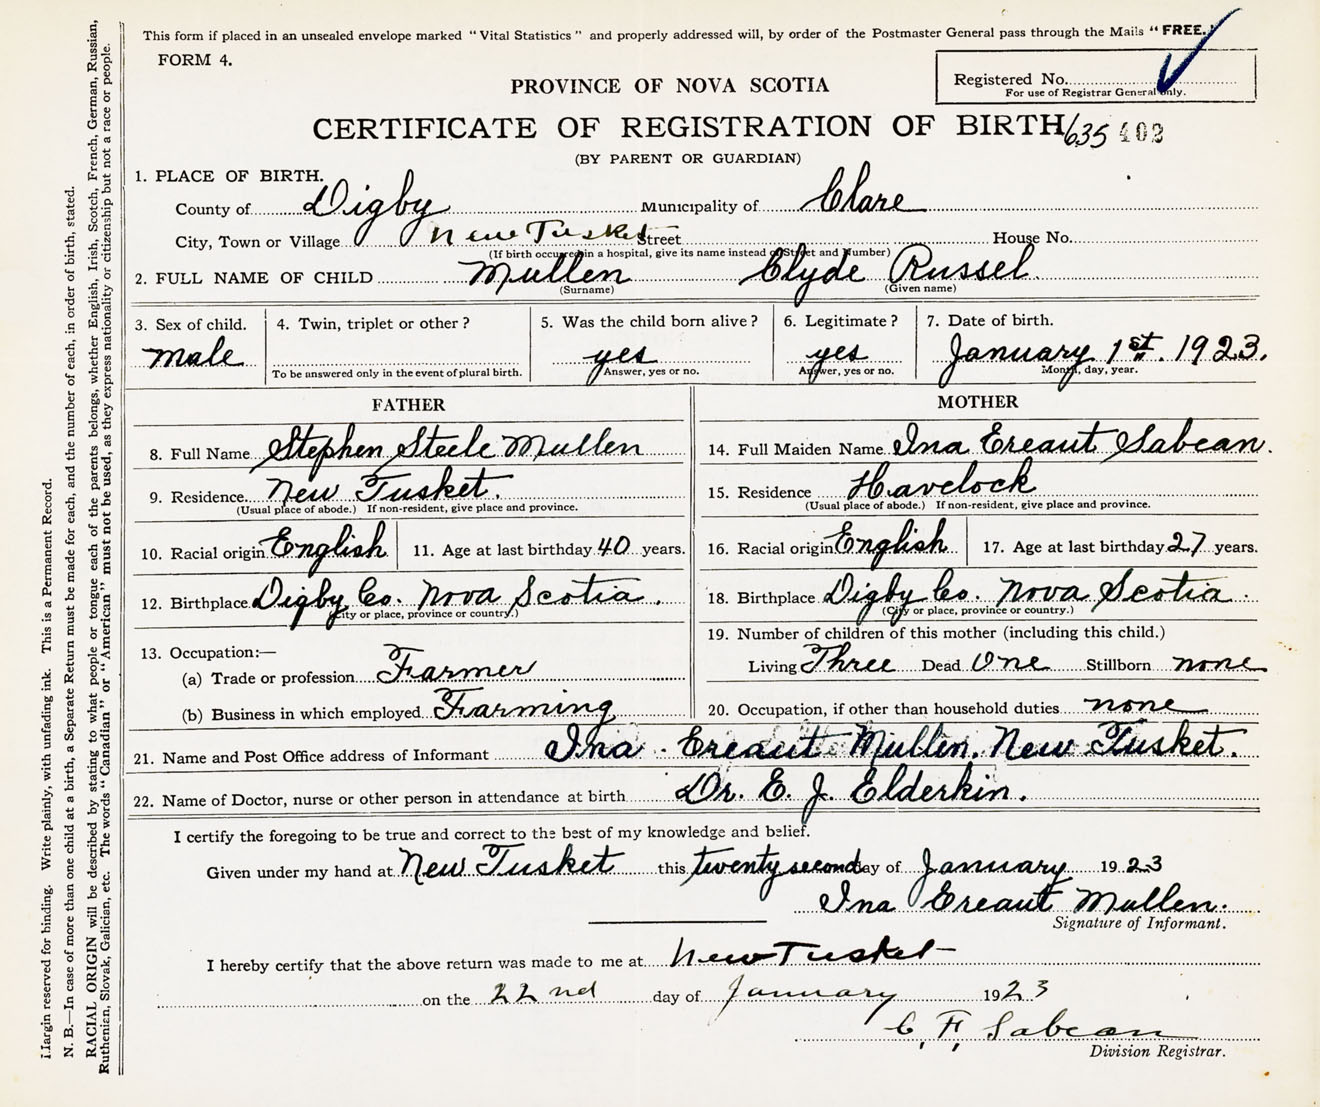 This form if placed in an unsealed envelope marked "Vital Statistics" and properly addressed will, by order of the Postmaster General pass through the Mails "FREE."
FORM 4.
Registered No.
For use of Registrar General only.
PROVINCE OF NOVA SCOTIA
CERTIFICATE OF REGISTRATION OF BIRTH 635 402
(BY PARENT OR GUARDIAN)
1. PLACE OF BIRTH.
County of Digby Municipality of Clare
City, Town or Village New Tusket Street House No.
(If birth occurred in a hospital, give its name instead of Street and Number)
2. FULL NAME OF CHILD Mullen Clyde Russel
(Surname) (Given name)
3. Sex of child. 4. Twin, triplet or other? 5. Was the child born alive? 6. Legitimate? 7. Date of birth.
male yes yes January 1st. 1923.
To be answered only in the event of plural birth. Answer, yes or no. Answer, yes or no. Month, day, year.
FATHER MOTHER
8. Full Name Stephen Steele Mullen 14. Full Maiden Name Ina Ereaut Sabean.
9. Residence New Tusket. 15. Residence Havelock
(Usual place of abode.) If non-resident, give place and province. (Usual place of abode.) If non-resident, give place and province.
10. Racial origin English 11. Age at last birthday 40 years. 16. Racial origin English 17. Age at last birthday 27 years.
12. Birthplace Digby Co. Nova Scotia. 18. Birthplace Digby Co. Nova Scotia.
(City or place, province or country.) (City or place, province or country.)
19. Number of children of this mother (including this child.)
13. Occupation:—
Living Three Dead One Stillborn none
(a) Trade or profession Farmer
(b) Business in which employed Farming 20. Occupation, if other than household duties none
21. Name and Post Office address of Informant Ina Ereaut Mullen. New Tusket.
22. Name of Doctor, nurse or other person in attendance at birth Dr. E. J. Elderkin.
I certify the foregoing to be true and correct to the best of my knowledge and belief.
Given under my hand at New Tusket this twenty second day of January 1923
Ina Ereaut Mullen.
Signature of Informant.
I hereby certify that the above return was made to me at New Tusket
on the 22nd day of January 1923
C. F. Sabean
Division Registrar.
Margin reserved for binding. Write plainly, with unfading ink. This is a Permanent Record.
N. B.—In case of more than one child at a birth, a Separate Return must be made for each, and the number of each, in order of birth, stated.
RACIAL ORIGIN will be described by stating to what people or tongue each of the parents belongs, whether English, Irish, Scotch, French, German, Russian,
Ruthenian, Slovak, Galician, etc. The words "Canadian" or "American" must not be used, as they express nationality or citizenship but not a race or people.